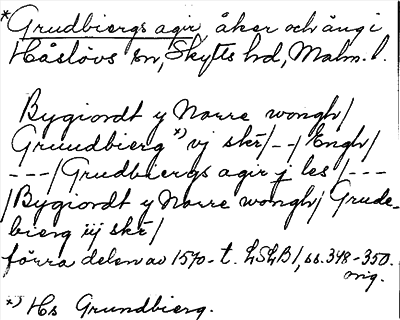 *Grudbiergs agir, åker och äng i
Håslövs sn, Skytts hd, Malm. l.
Bygiordt y Norre wongh/
Gruudbierg *) vj ske/--/Engh/
---/Grudbiergs agir j les/---
/Bygiordt y Norre wongh/Grude-
bierg iij ske/
förra delen av 1570-t. LSLB1, ss. 348-350.
orig.
*) Hs Grundbierg.